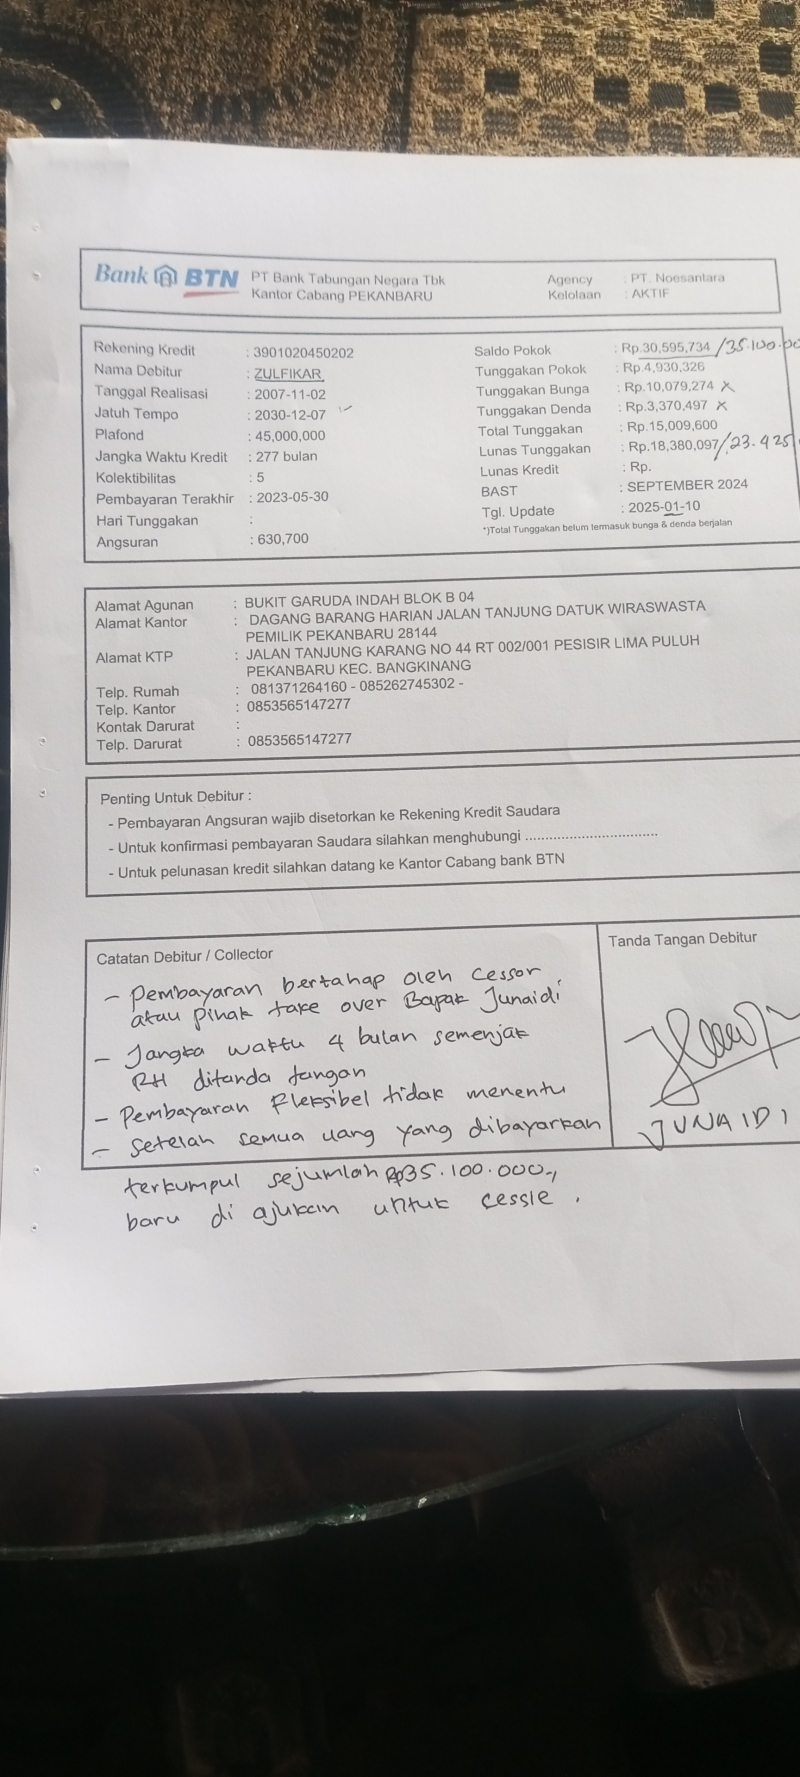 Bank BTN PT Bank Tabungan Negara Tbk
Kantor Cabang PEKANBARU
Agency : PT. Noesantara
Kelolaan : AKTIF
Rekening Kredit : 3901020450202
Nama Debitur : ZULFIKAR
Tanggal Realisasi : 2007-11-02
Jatuh Tempo : 2030-12-07
Plafond : 45,000,000
Jangka Waktu Kredit : 277 bulan
Kolektibilitas : 5
Pembayaran Terakhir : 2023-05-30
Hari Tunggakan :
Angsuran : 630,700
Saldo Pokok : Rp.30,595,734 /35.100.00
Tunggakan Pokok : Rp.4,930,326
Tunggakan Bunga : Rp.10,079,274 x
Tunggakan Denda : Rp.3,370,497 x
Total Tunggakan : Rp.15,009,600
Lunas Tunggakan : Rp.18,380,097/23.425
Lunas Kredit : Rp.
BAST : SEPTEMBER 2024
Tgl. Update : 2025-01-10
*)Total Tunggakan belum termasuk bunga & denda berjalan
Alamat Agunan : BUKIT GARUDA INDAH BLOK B 04
Alamat Kantor : DAGANG BARANG HARIAN JALAN TANJUNG DATUK WIRASWASTA
PEMILIK PEKANBARU 28144
Alamat KTP : JALAN TANJUNG KARANG NO 44 RT 002/001 PESISIR LIMA PULUH
PEKANBARU KEC. BANGKINANG
Telp. Rumah : 081371264160 - 085262745302 -
Telp. Kantor : 0853565147277
Kontak Darurat :
Telp. Darurat : 0853565147277
Penting Untuk Debitur :
- Pembayaran Angsuran wajib disetorkan ke Rekening Kredit Saudara
- Untuk konfirmasi pembayaran Saudara silahkan menghubungi ..................................
- Untuk pelunasan kredit silahkan datang ke Kantor Cabang bank BTN
Catatan Debitur / Collector
- Pembayaran bertahap oleh Cessor
atau Pihak take over Bapak Junaidi
- Jangka waktu 4 bulan semenjak
RH ditanda tangan
- Pembayaran Fleksibel tidak menentu
- Setelah semua uang yang dibayarkan
terkumpul sejumlah Rp35.100.000,
baru di ajukan untuk cessie.
Tanda Tangan Debitur
JUNAIDI